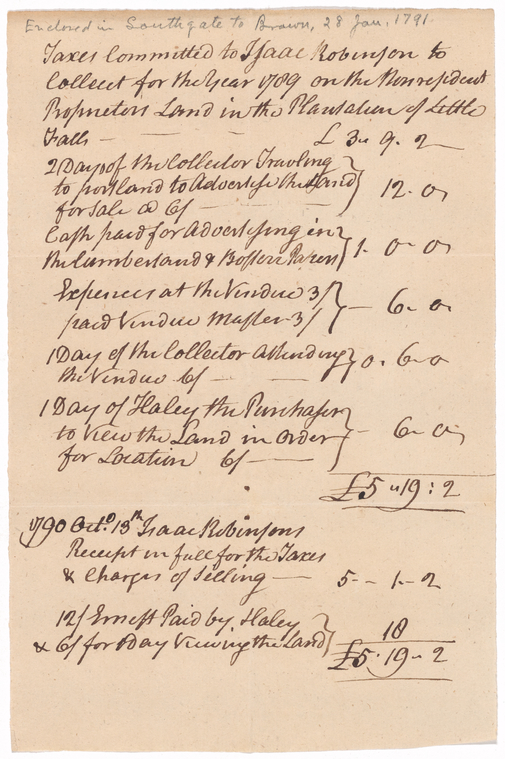 Enclosed in Southgate to Brown, 28 Jan. 1791.
Taxes Committed to Isaac Robinson to
Collect for the Year 1789 on the Nonresident
Proprietors Land in the Plantation of Little
Falls — — — £ 3 " 9 " 2
2 Days of the Collector Traveling
to portland to Advertise the Land
for Sale @ 6/ — — 12 - 0
Cash paid for Advertising in
the Cumberland & Boston Papers 1 - 0 - 0
Expences at the Vendue 3/
paid Vendue Master 3/ — 6 - 0
1 Day of the Collector attending
the Vendue 6/ — 0 - 6 - 0
1 Day of Haley the Purchaser
to View the Land in order
for Location 6/ — — 6 - 0
£5 " 19 : 2
1790 Octo. 13th Isaac Robinsons
Receipt in full for the Taxes
& Charges of Selling — 5 - - 1 - 2
12/ Paid by Haley
& 6/ for 1 day Viewing the Land 18
£5 " 19 - 2